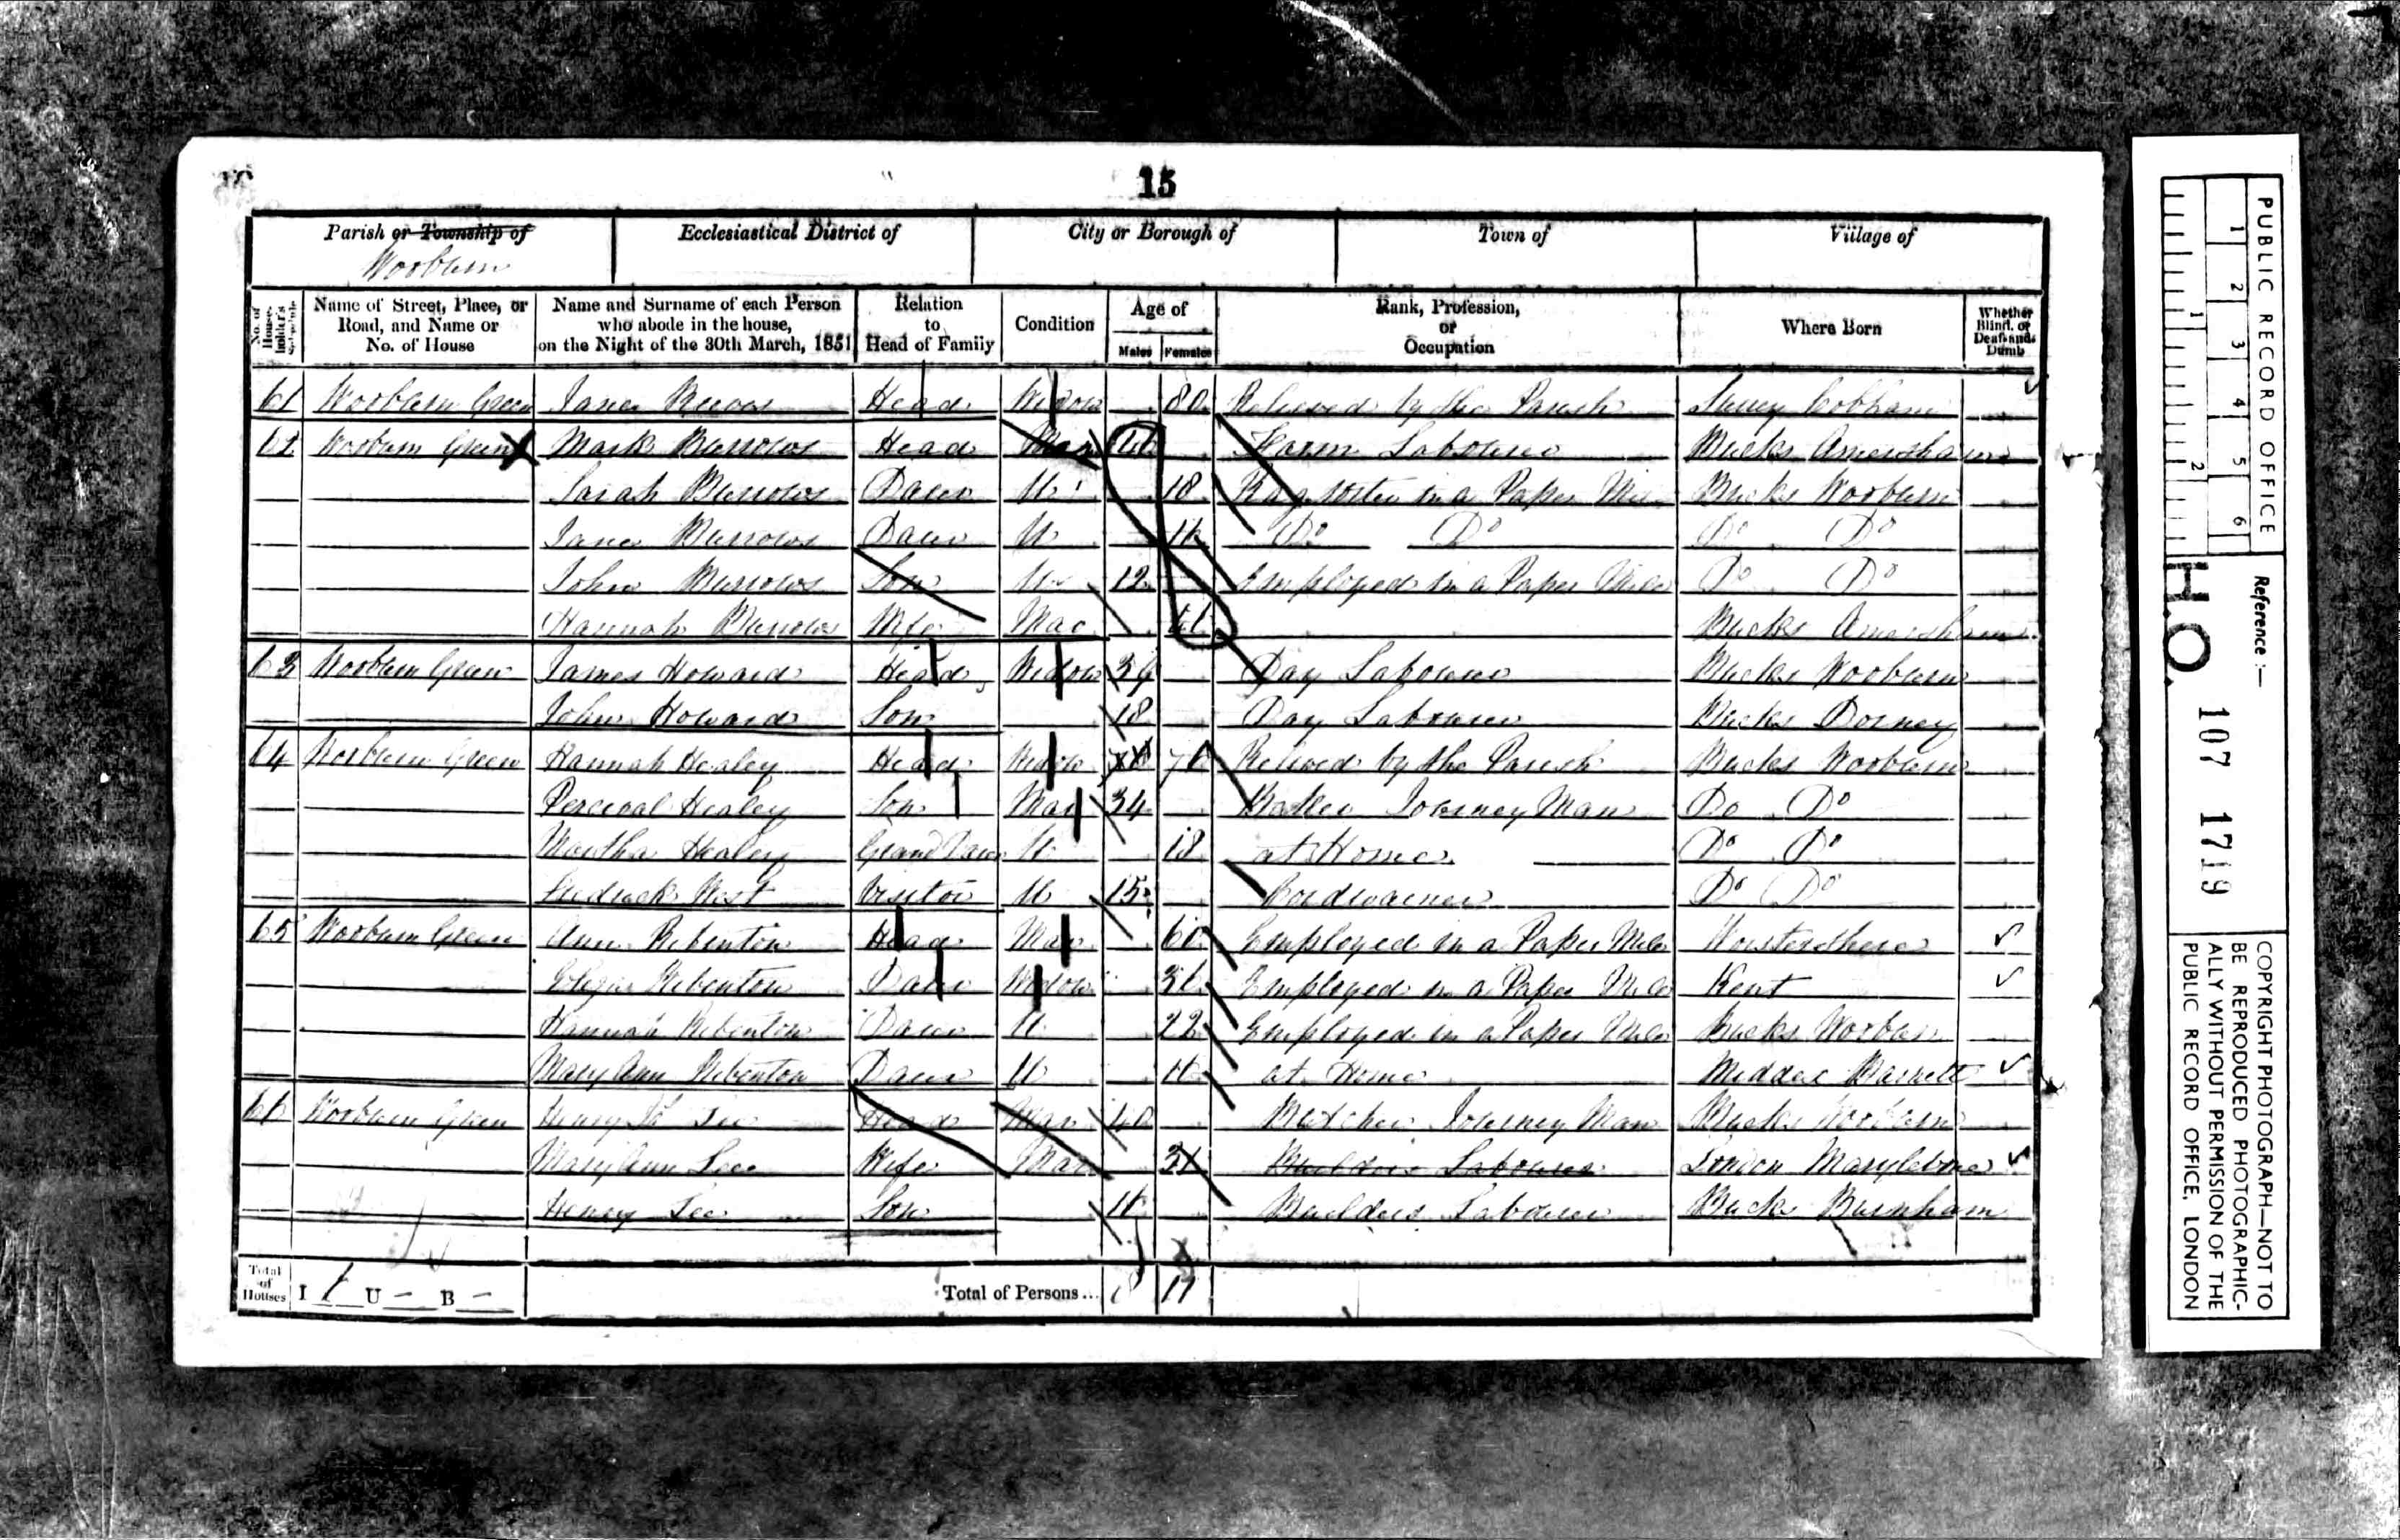 15
Parish or Township of
Wooburn
Ecclesiastical District of
City or Borough of
Town of
Village of
No. of House-holder's Schedule
Name of Street, Place, or Road, and Name or No. of House
Name and Surname of each Person who abode in the house, on the Night of the 30th March, 1851
Relation to Head of Family
Condition
Age of
Males Females
Rank, Profession, or Occupation
Where Born
Whether Blind, or Deaf-and-Dumb
61 Wooburn Green Jane Head Widow 80 Relieved by the Parish Surrey Cobham
62 Wooburn Green Mark Burrows Head Mar Farm Labourer Bucks Amersham
Sarah Burrows Daur U 18 Rag in a Paper Mill Bucks Wooburn
Jane Burrows Daur U 16 Do Do Do Do
John Burrows Son U 12 Employed in a Paper Mill Do Do
Hannah Burrows Wife Mar Bucks Amersham
63 Wooburn Green James Howard Head Widow Day Labourer Bucks Wooburn
John Howard Son 18 Day Labourer Bucks Dorney
64 Wooburn Green Hannah Healey Head Widow Relieved by the Parish Bucks Wooburn
Percival Healey Son Mar 34 Journey Man Do Do
Martha Healey Grand Daur U 18 at Home Do Do
West Visitor U 15 Cordwainer Do Do
65 Wooburn Green Ann Head Mar Employed in a Paper Mill
Daur Widow Employed in a Paper Mill Kent
Hannah Daur U 22 Employed in a Paper Mill Bucks Wooburn
Mary Ann Daur U at Home
66 Wooburn Green Henry Lee Head Mar Butcher Journey Man Bucks Wooburn
Mary Ann Lee Wife Mar Labourer London Marylebone
Henry Lee Son Builders Labourer Bucks Burnham
Total of Houses I U – B –
Total of Persons... 8 11
PUBLIC RECORD OFFICE
1 2 3 4 5 6
1 2
Reference :—
H.O. 107 1719
COPYRIGHT PHOTOGRAPH—NOT TO
BE REPRODUCED PHOTOGRAPHIC-
ALLY WITHOUT PERMISSION OF THE
PUBLIC RECORD OFFICE, LONDON